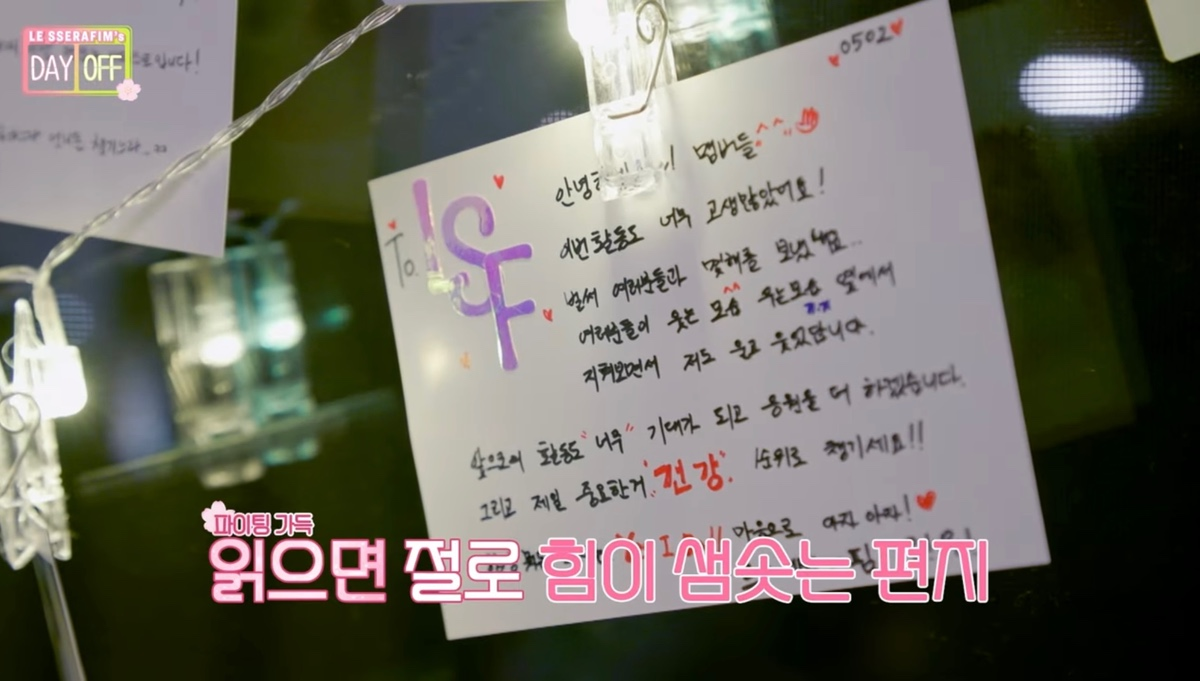 LE SSERAFIM's
DAY OFF
0502
To. LSF
멤버들^^
이번활동도 너무 고생많았어요!
벌써 여러분들과 몇해를 보냈네요...
여러분들이 웃는 모습 우는모습 옆에서
지켜보면서 저도 울고 웃었답니다.
앞으로의 활동도 "너무" 기대가 되고 응원을 더 하겠습니다.
그리고 제일 중요한거 "건강" 순위로 챙기세요!!
마음으로 아자 아자!
파이팅 가득
읽으면 절로 힘이 샘솟는 편지